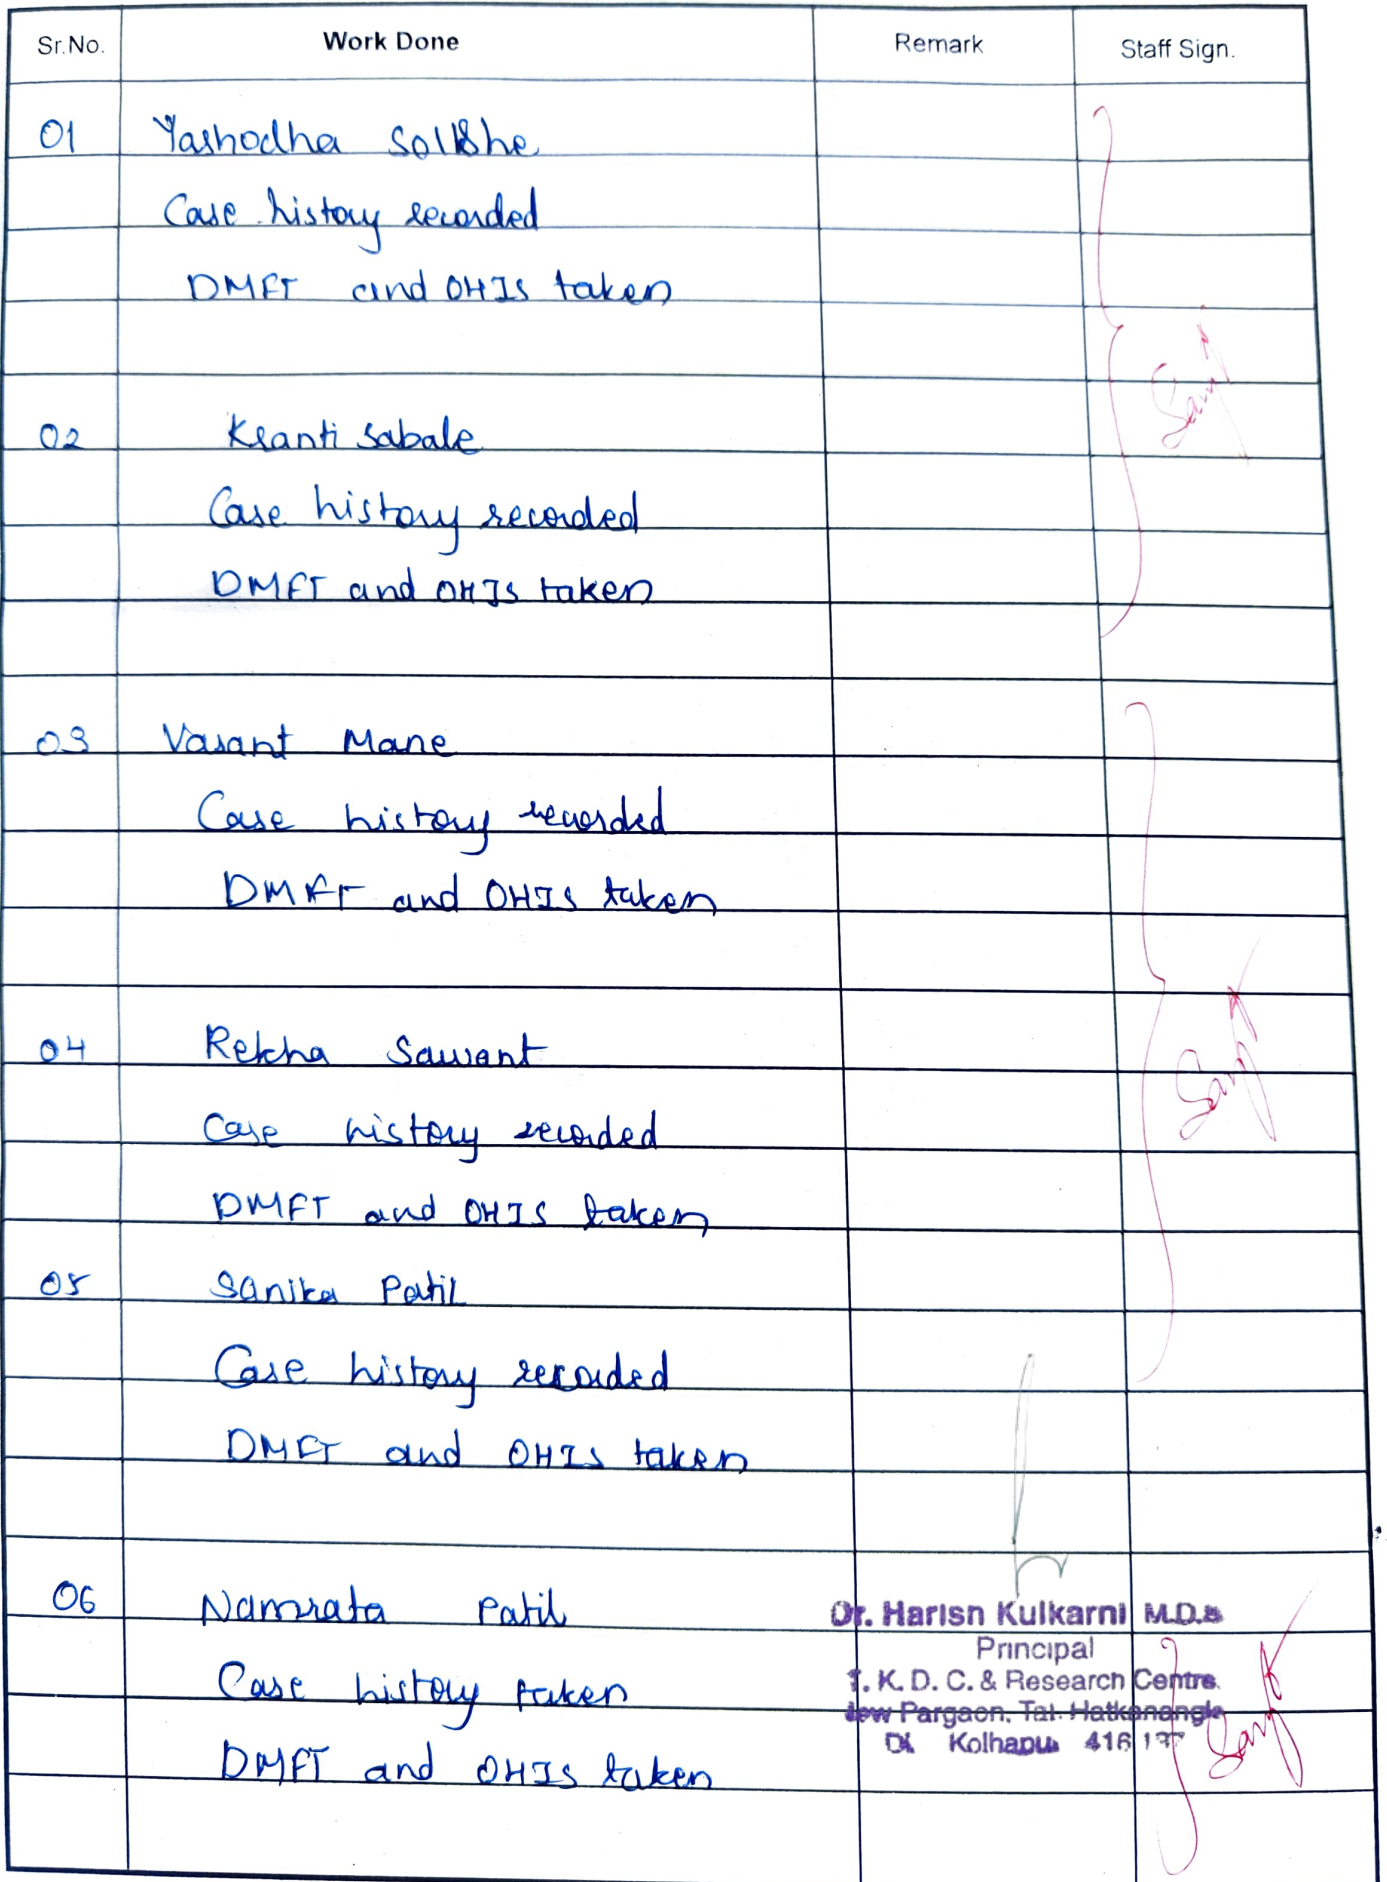 Sr.No. Work Done Remark Staff Sign.
01 Yashodha
Case history recorded
DMFT and OHIS taken
02 Kranti Sabale
Case history recorded
DMFT and OHIS taken
03 Vasant Mane
Case history recorded
DMFT and OHIS taken
04 Rekha Sawant
Case history recorded
DMFT and OHIS taken
05 Sanika Patil
Case history recorded
DMFT and OHIS taken
06 Namrata Patil
Dr. Harish Kulkarni M.D.S
Principal
T. K. D. C. & Research Centre.
Case history taken
New Pargaon, Tal. Hatkanangle
Kolhapur 416 137
DMFT and OHIS taken